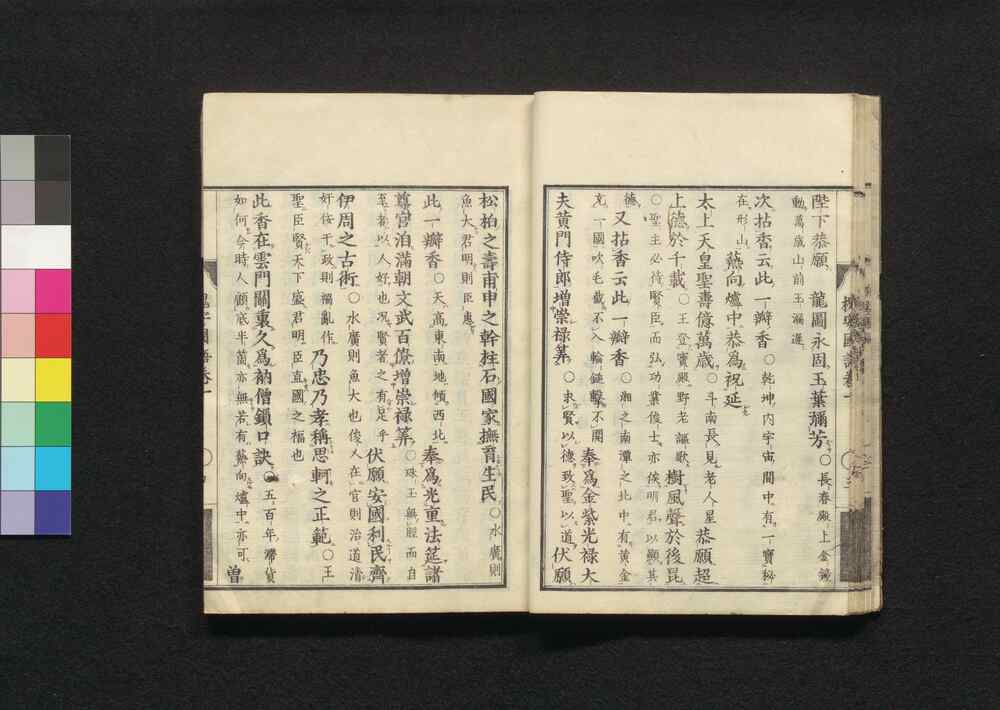 陛下恭願 龍圖永固玉葉彌芳○長春殿上金鐘
動萬歳山前玉漏遲
次拈香云此一瓣香○乾坤内宇宙間中有一寶秘
在形山 爇向爐中恭爲祝延
太上天皇聖壽億萬歳○斗南長見老人星 恭願超
上德於千載○王登寶殿野老謳歌 樹風聲於後昆
○聖主必待賢臣而弘功業俊士亦俟明君以顯其
德 又拈香云此一瓣香○湘之南潭之北中有黄金
充一國吹毛截不入輪鎚擊不開 奉爲金紫光禄大
夫黄門侍郎増崇禄筭○求賢以德致聖以道 伏願
松柏之壽甫申之幹柱石國家撫育生民○水廣則
魚大君明則臣惠
此一瓣香○天高東南地傾西北 奉爲光重法筵諸
尊官洎滿朝文武百僚増崇禄筭○珠玉無脛而自
至者以人好也况賢者之有足乎 伏願安國利民齊
伊周之古術○水廣則魚大也俊人在官則治道清
奸佞干政則禍亂作 乃忠乃孝稱思軻之正範○王
聖臣賢天下盛君明臣直國之福也
此香在雲門關裏久爲衲僧鎖口訣○五百年滯貨
如何今時人顧底半箇亦無若有爇向爐中亦可 曽